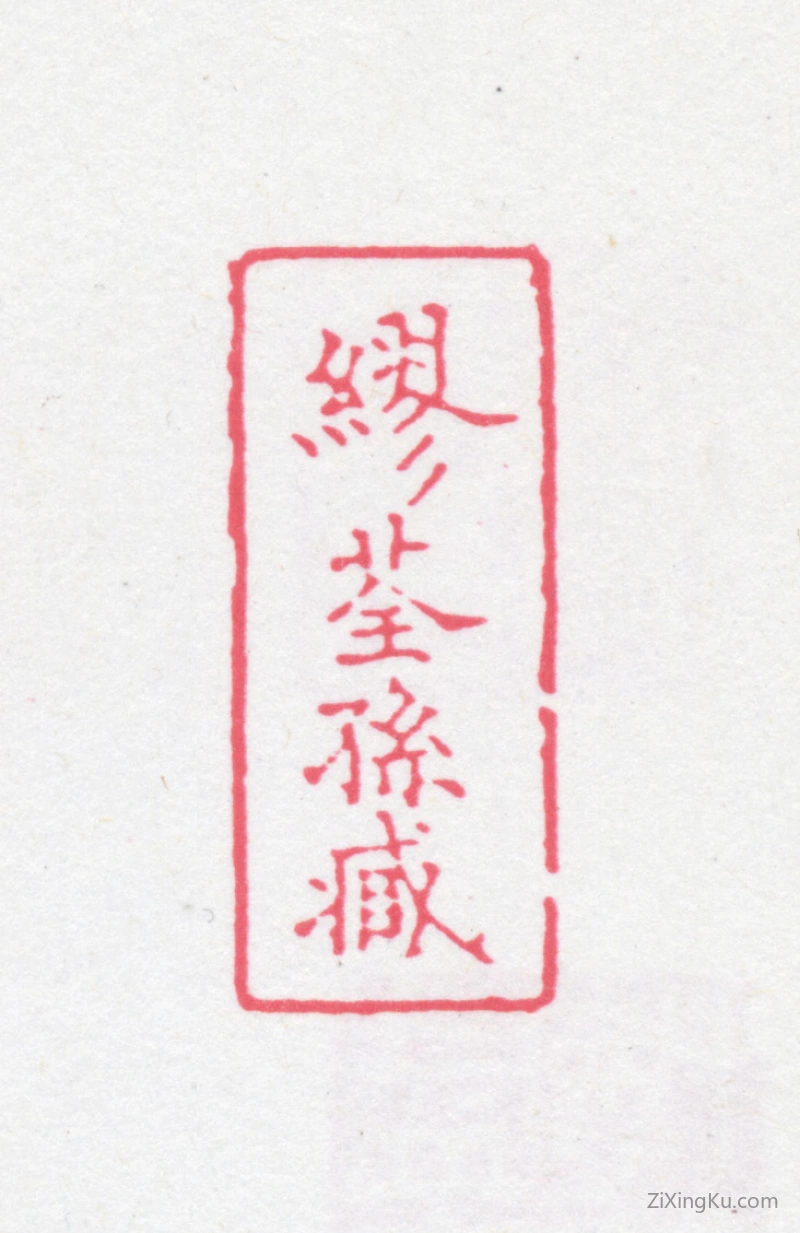 繆荃孫臧
ZiXingKu.com